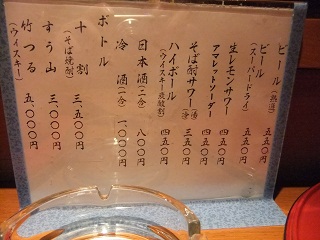 ビール（熱選） 五五〇円
ビール
（スーパードライ） 五五〇円
生レモンサワー 五五〇円
アマレットソーダー 四五〇円
そば酎サワー 三五〇円
ハイボール 四五〇円
（ウイスキー炭酸割）
日本酒（二合） 八〇〇円
冷酒（二合） 一、〇〇〇円
ボトル
十割 三、五〇〇円
（そば焼酎）
すう山 三、〇〇〇円
竹つる 五、〇〇〇円
（ウイスキー）